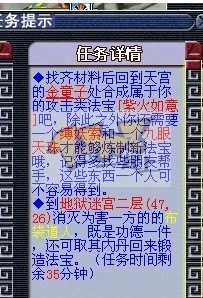 任务提示
任务详情
◆找齐材料后回到天宫
的金童子处合成属于你
的攻击类法宝[紫火如意
]吧，除此之外你还需要
一个缚妖索和一个九眼
天珠才能够炼制新法宝
哦，记得多找些朋友帮
手，这些东西一个人可
不容易得到。
◆到地狱迷宫二层(47,
26)消灭为害一方的的布
袋道人，既是功德一件
，还可取其内丹回来锻
造法宝。（任务时间剩
余35分钟）